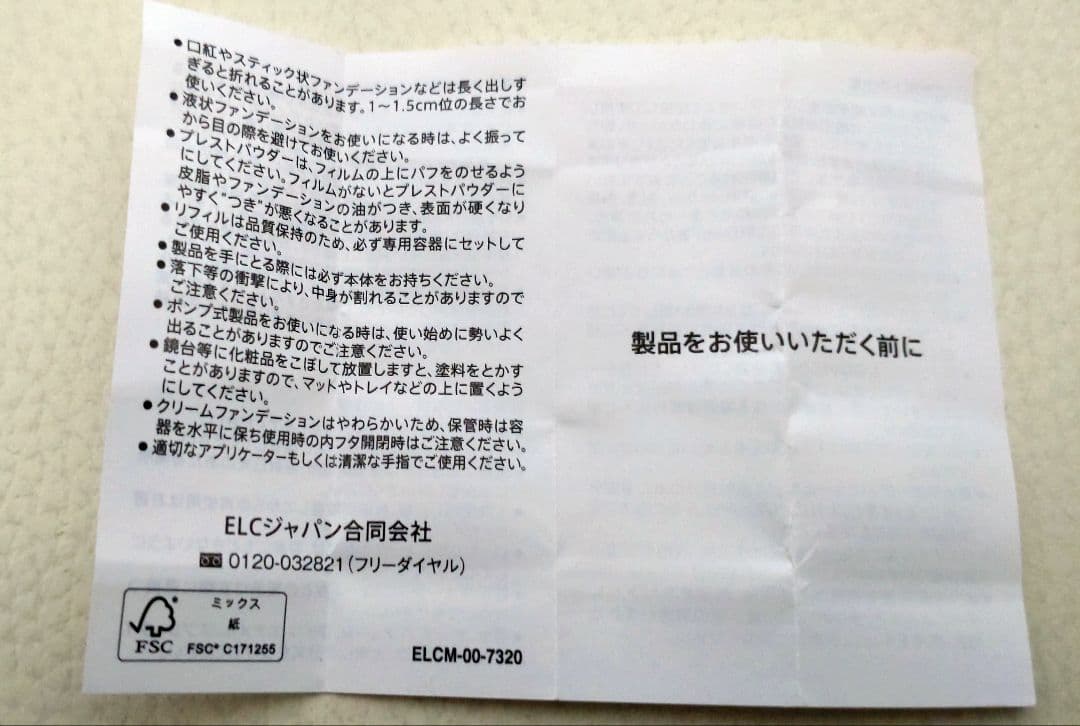 ●口紅やスティック状ファンデーションなどは長く出しす
ぎると折れることがあります。1〜1.5cm位の長さでお
使いください。
●液状ファンデーションをお使いになる時は、よく振って
から目の際を避けてお使いください。
●プレストパウダーは、フィルムの上にパフをのせるよう
にしてください。フィルムがないとプレストパウダーに
皮脂やファンデーションの油がつき、表面が硬くなり
やすく"つき"が悪くなることがあります。
●リフィルは品質保持のため、必ず専用容器にセットして
ご使用ください。
●製品を手にとる際には必ず本体をお持ちください。
●落下等の衝撃により、中身が割れることがありますので
ご注意ください。
●ポンプ式製品をお使いになる時は、使い始めに勢いよく
出ることがありますのでご注意ください。
●鏡台等に化粧品をこぼして放置しますと、塗料をとかす
ことがありますので、マットやトレイなどの上に置くよう
にしてください。
●クリームファンデーションはやわらかいため、保管時は容
器を水平に保ち使用時の内フタ開閉時はご注意ください。
●適切なアプリケーターもしくは清潔な手指でご使用ください。
ELCジャパン合同会社
0120-032821(フリーダイヤル)
ミックス
紙
FSC
FSC® C171255
ELCM-00-7320
製品をお使いいただく前に